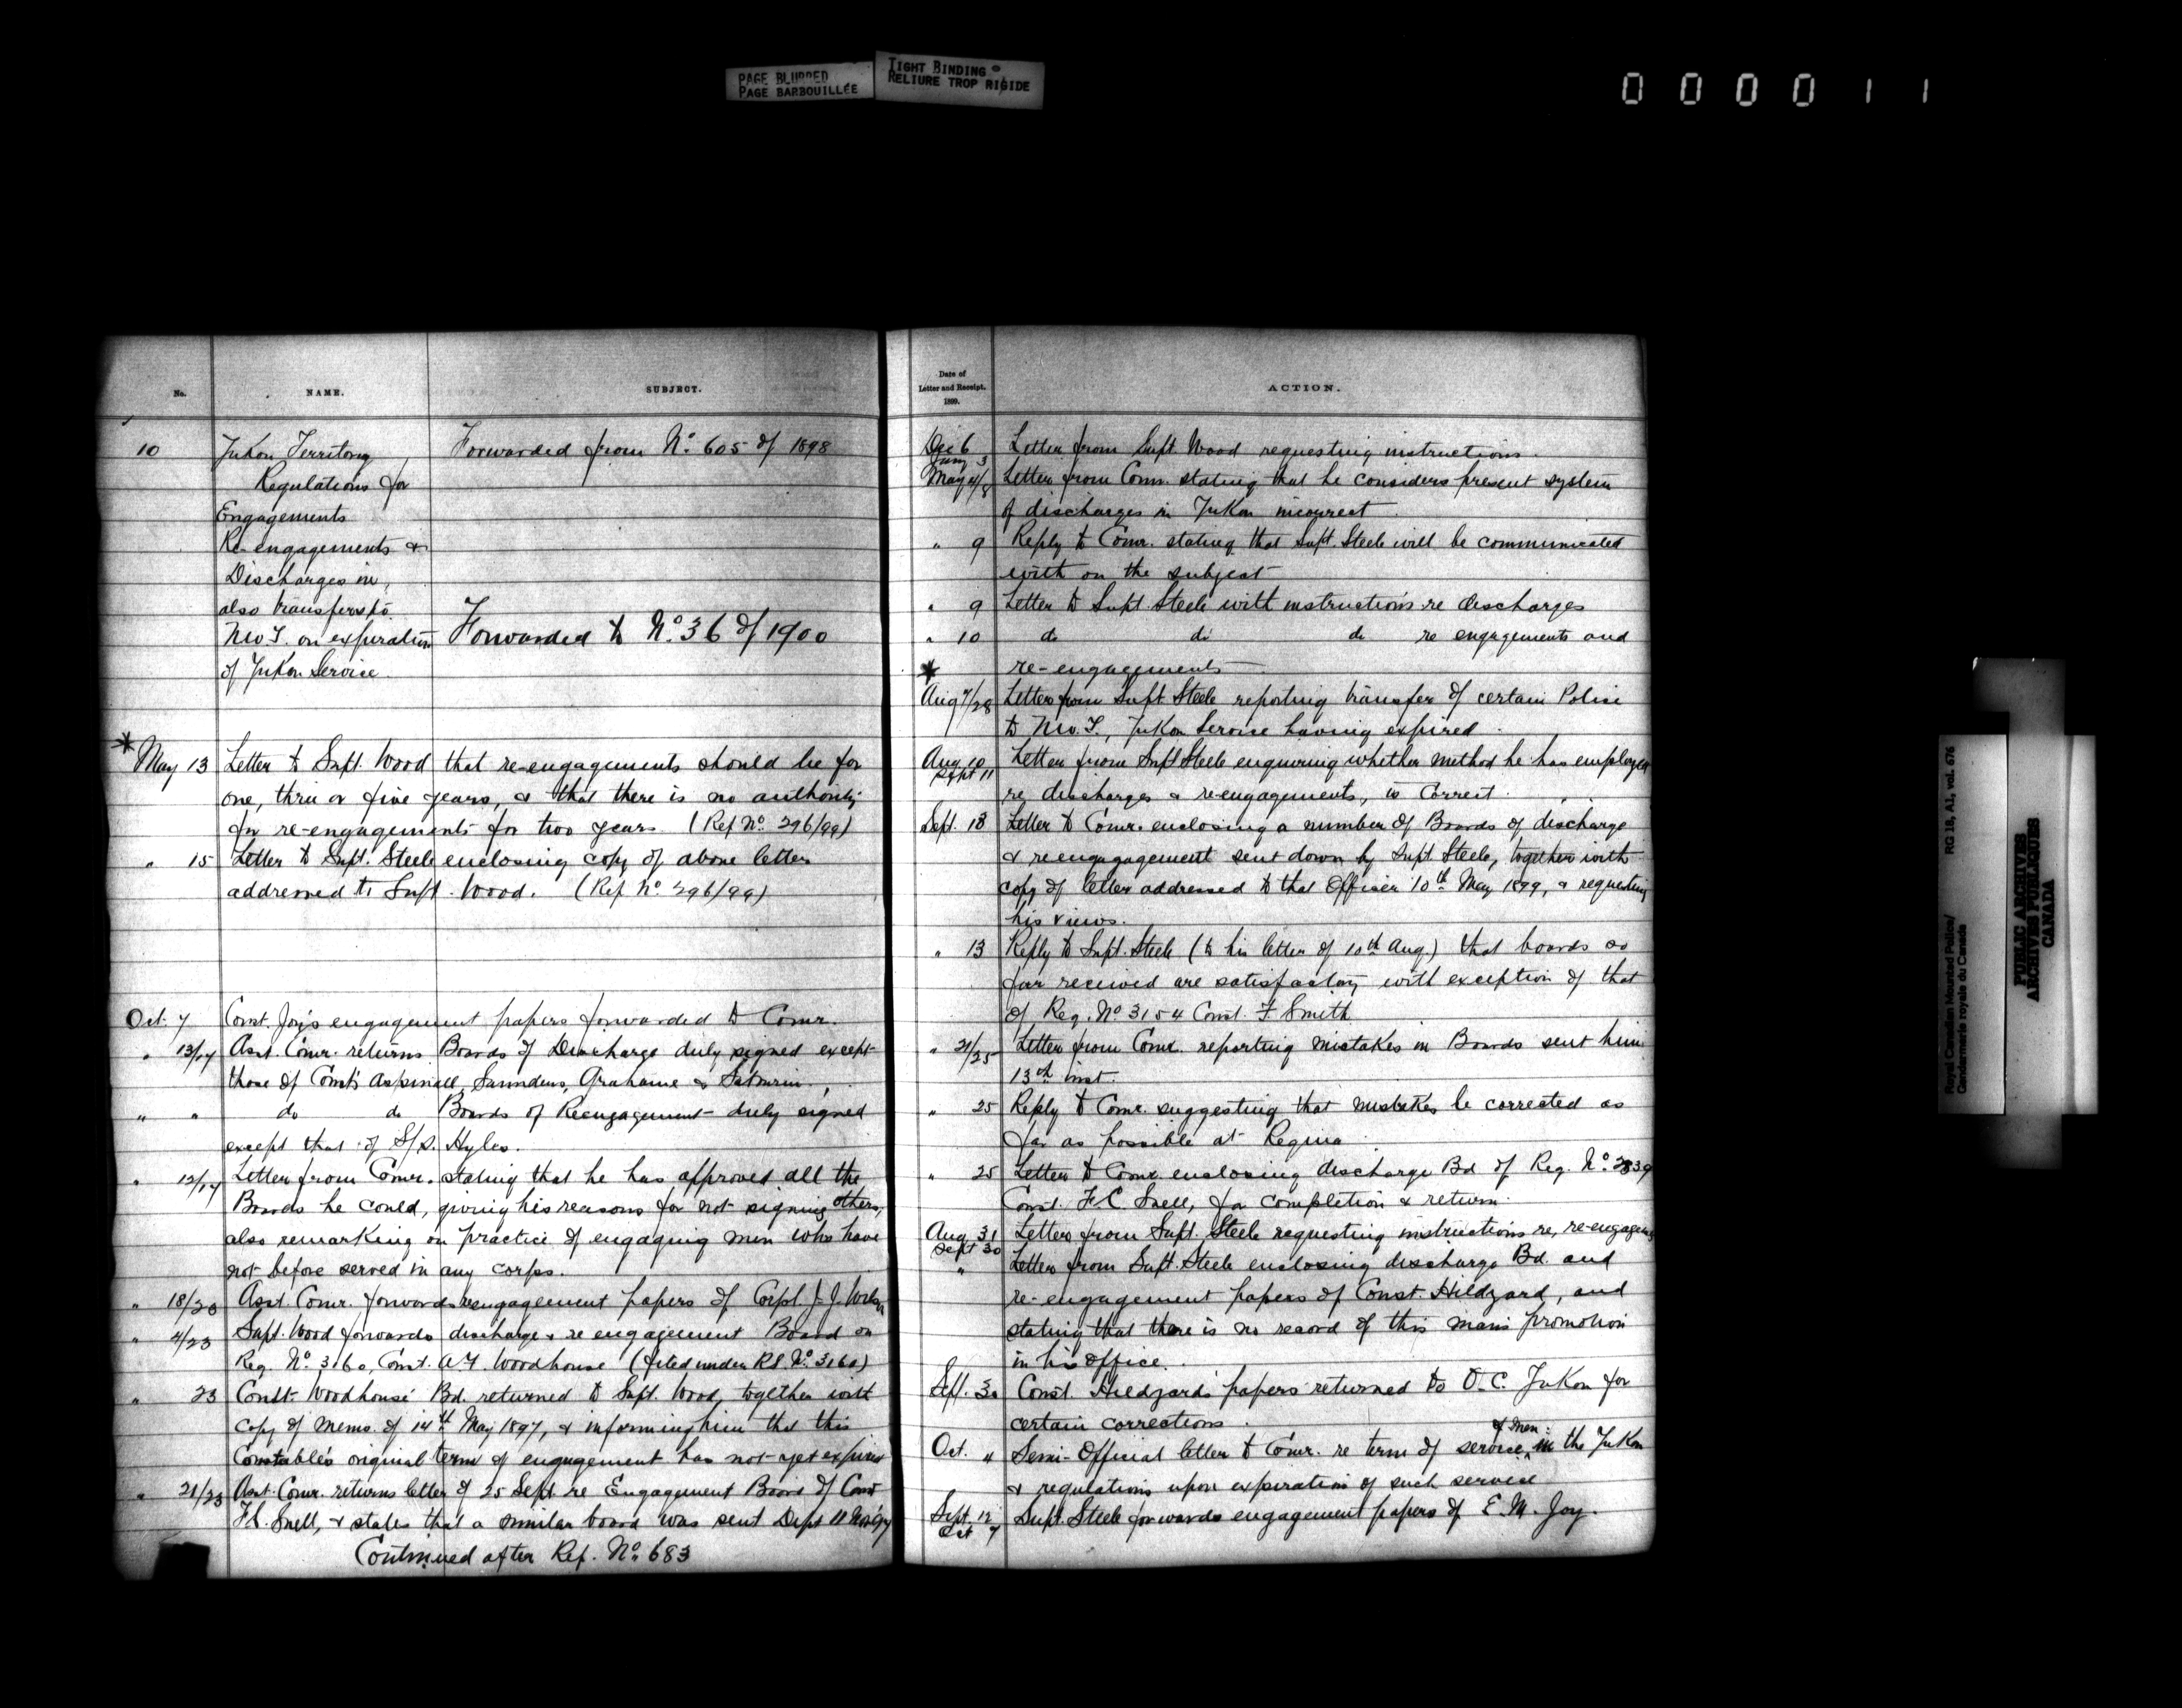 PAGE BLURRED
PAGE BARBOUILLÉE
TIGHT BINDING
RELIURE TROP RIGIDE
000011
No. NAME. SUBJECT.
10 Yukon Territory Forwarded from No. 605 of 1898
Regulations for
Engagements
Re-engagements &
Discharges in,
also transfers to
N.W.T. on expiration Forwarded to No. 36 of 1900
of Yukon Service.
* May 13 Letter to Supt. Wood that re-engagements should be for
one, three or five years, & that there is no authority
for re-engagements for two years. (Ref No. 296/99)
" 15 Letter to Supt. Steele enclosing copy of above letter
addressed to Supt. Wood. (Ref No. 296/99)
Oct. 7 Const. Joy's engagement papers forwarded to Comr.
" 13/17 Asst. Comr. returns Boards of Discharge duly signed except
those of Const's Aspinall, Saunders, Grahame &
" " do do Boards of Reengagement duly signed
except that of S/S. Hyles.
" 12/17 Letter from Comr. stating that he has approved all the
Boards he could, giving his reasons for not signing others,
also remarking on practice of engaging men who have
not before served in any corps.
" 18/20 Asst. Comr. forwards reengagement papers of Corpl. J. J. Wilson
" 4/23 Supt. Wood forwards discharge & re engagement Board on
Reg. No. 3160, Const. A.F. Woodhouse (filed under R.S. No. 3160)
" 23 Const. Woodhouse' Bd. returned to Supt. Wood, together with
copy of memo. of 14th May 1897, & informing him that this
Constable's original term of engagement has not yet expired
" 21/23 Asst. Comr. returns letter of 25 Sept. re Engagement Board of Const
F.C. Snell, & states that a similar board was sent Dept 11
Continued after Ref. No. 683
Date of
Letter and Receipt.
1899.
ACTION.
Dec 6 Letter from Supt. Wood requesting instructions.
Jany 3
May 4/8 Letter from Comr. stating that he considers present system
of discharges in Yukon incorrect
" 9 Reply to Comr. stating that Supt. Steele will be communicated
with on the subject
" 9 Letter to Supt. Steele with instructions re discharges
" 10 do do do re engagements and
* re-engagements
Aug 7/28 Letter from Supt. Steele reporting transfer of certain Police
to N.W.T., Yukon Service having expired.
Aug. 10 Letter from Supt Steele enquiring whether method he has employed
Sept 11 re discharges & re-engagements, is correct.
Sept. 13 Letter to Comr. enclosing a number of Boards of discharge
& reengagagement sent down by Supt. Steele, together with
copy of letter addressed to that Officer 10th May 1899, & requesting
his views.
" 13 Reply to Supt. Steele (to his letter of 10th Aug.) that boards so
far received are satisfactory with exception of that
of Reg. No 3154 Const. F. Smith
" 21/25 Letter from Comr. reporting mistakes in Boards sent him
13th inst.
" 25 Reply to Comr. suggesting that mistakes be corrected as
far as possible at Regina
" 25 Letter to Comr. enclosing discharge Bd of Reg. No.
Const. F.C. Snell, for completion & return.
Aug. 31 Letter from Supt. Steele requesting instructions re, re-engagem
Sept 30
" Letter from Supt. Steele enclosing discharge Bd. and
re-engagement papers of Const. Hildyard, and
stating that there is no record of this man's promotion
in his office.
Sept. 30 Const. Hildyard's papers returned to O.C. Yukon for
certain corrections.
Oct. 4 Semi-Official letter to Comr. re term of service & men in the Yukon
& regulations upon expiration of such service
Sept. 12 Supt. Steele forwards engagement papers of E. M. Joy.
Oct 7
Royal Canadian Mounted Police/ RG 18, A1, vol. 676
Gendarmerie royale du Canada
PUBLIC ARCHIVES
ARCHIVES PUBLIQUES
CANADA